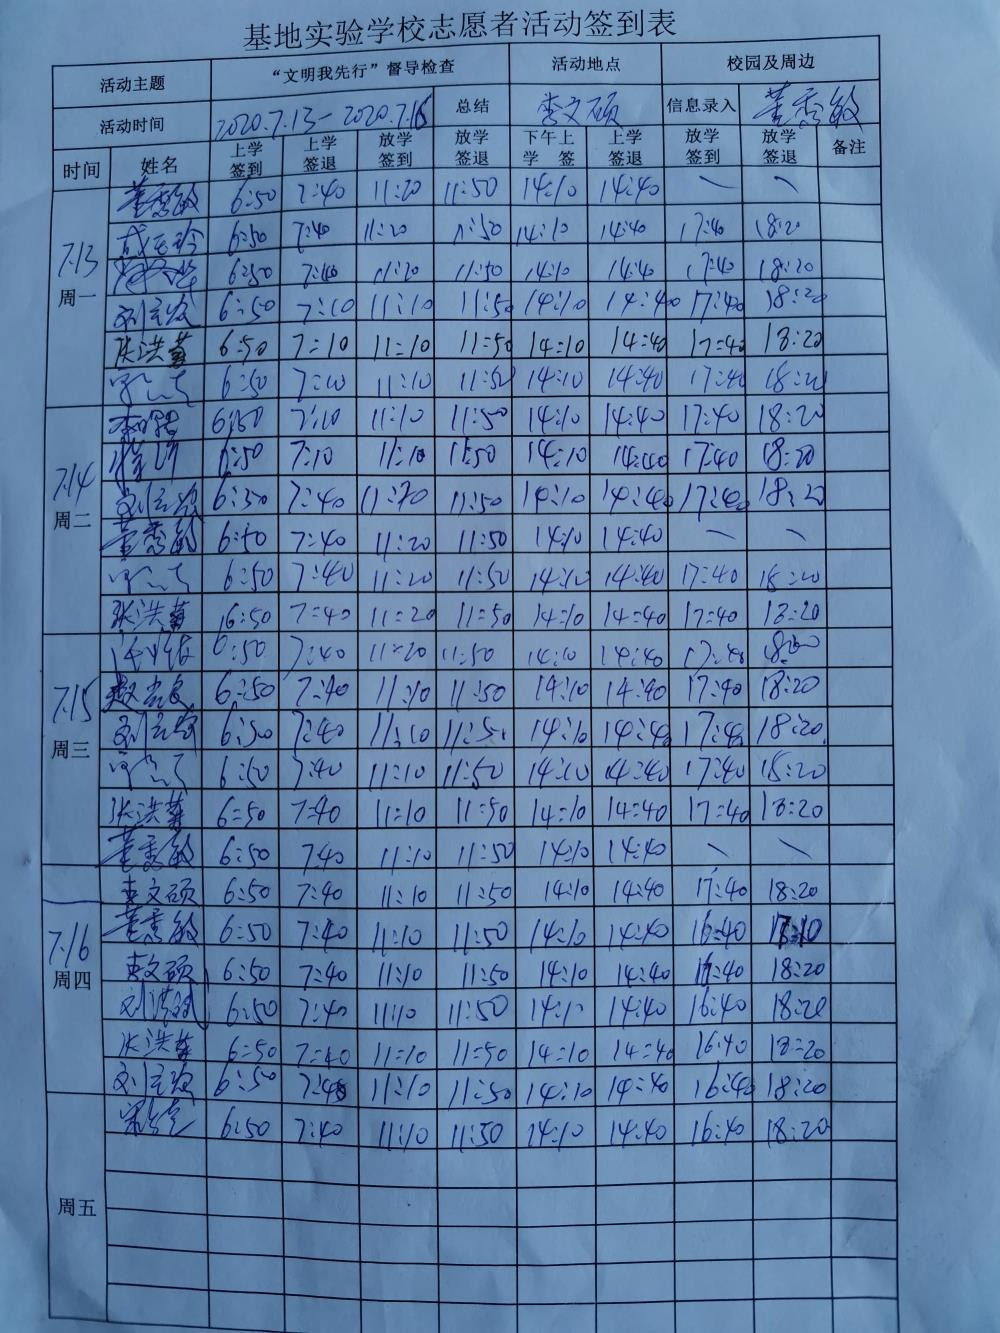 基地实验学校志愿者活动签到表
活动主题 “文明我先行”督导检查 活动地点 校园及周边
活动时间 2020.7.13-2020.7.16 总结 李文硕 信息录入 董秀敏
时间 姓名 上学签到 上学签退 放学签到 放学签退 下午上学 签 上学签退 放学签到 放学签退 备注
7.13 周一
董秀敏 6:50 7:40 11:20 11:50 14:10 14:40 — —
6:50 7:40 11:20 11:50 14:10 14:40 17:40 18:20
6:50 7:40 11:20 11:50 14:10 14:40 17:40 18:20
6:50 7:10 11:10 11:50 14:10 14:40 17:40 18:20
张洪 6:50 7:10 11:10 11:50 14:10 14:40 17:40 18:20
6:50 7:10 11:10 11:50 14:10 14:40 17:40 18:20
7.14 周二
6:50 7:10 11:10 11:50 14:10 14:40 17:40 18:20
6:50 7:10 11:10 11:50 14:10 14:40 17:40 18:20
6:50 7:40 11:20 11:50 14:10 14:40 17:40 18:20
董秀敏 6:50 7:40 11:20 11:50 14:10 14:40 — —
6:50 7:40 11:20 11:50 14:10 14:40 17:40 18:20
张洪 6:50 7:40 11:20 11:50 14:10 14:40 17:40 18:20
7.15 周三
6:50 7:40 11:20 11:50 14:10 14:40 17:40 18:20
6:50 7:40 11:10 11:50 14:10 14:40 17:40 18:20
6:50 7:40 11:10 11:50 14:10 14:40 17:40 18:20
6:50 7:40 11:10 11:50 14:10 14:40 17:40 18:20
张洪 6:50 7:40 11:10 11:50 14:10 14:40 17:40 18:20
董秀敏 6:50 7:40 11:10 11:50 14:10 14:40 — —
7.16 周四
李文硕 6:50 7:40 11:10 11:50 14:10 14:40 17:40 18:20
董秀敏 6:50 7:40 11:10 11:50 14:10 14:40 16:40 17:10
文硕 6:50 7:40 11:10 11:50 14:10 14:40 16:40 18:20
刘洪 6:50 7:40 11:10 11:50 14:10 14:40 16:40 18:20
张洪 6:50 7:40 11:10 11:50 14:10 14:40 16:40 18:20
6:50 7:40 11:10 11:50 14:10 14:40 16:40 18:20
周五
6:50 7:40 11:10 11:50 14:10 14:40 16:40 18:20